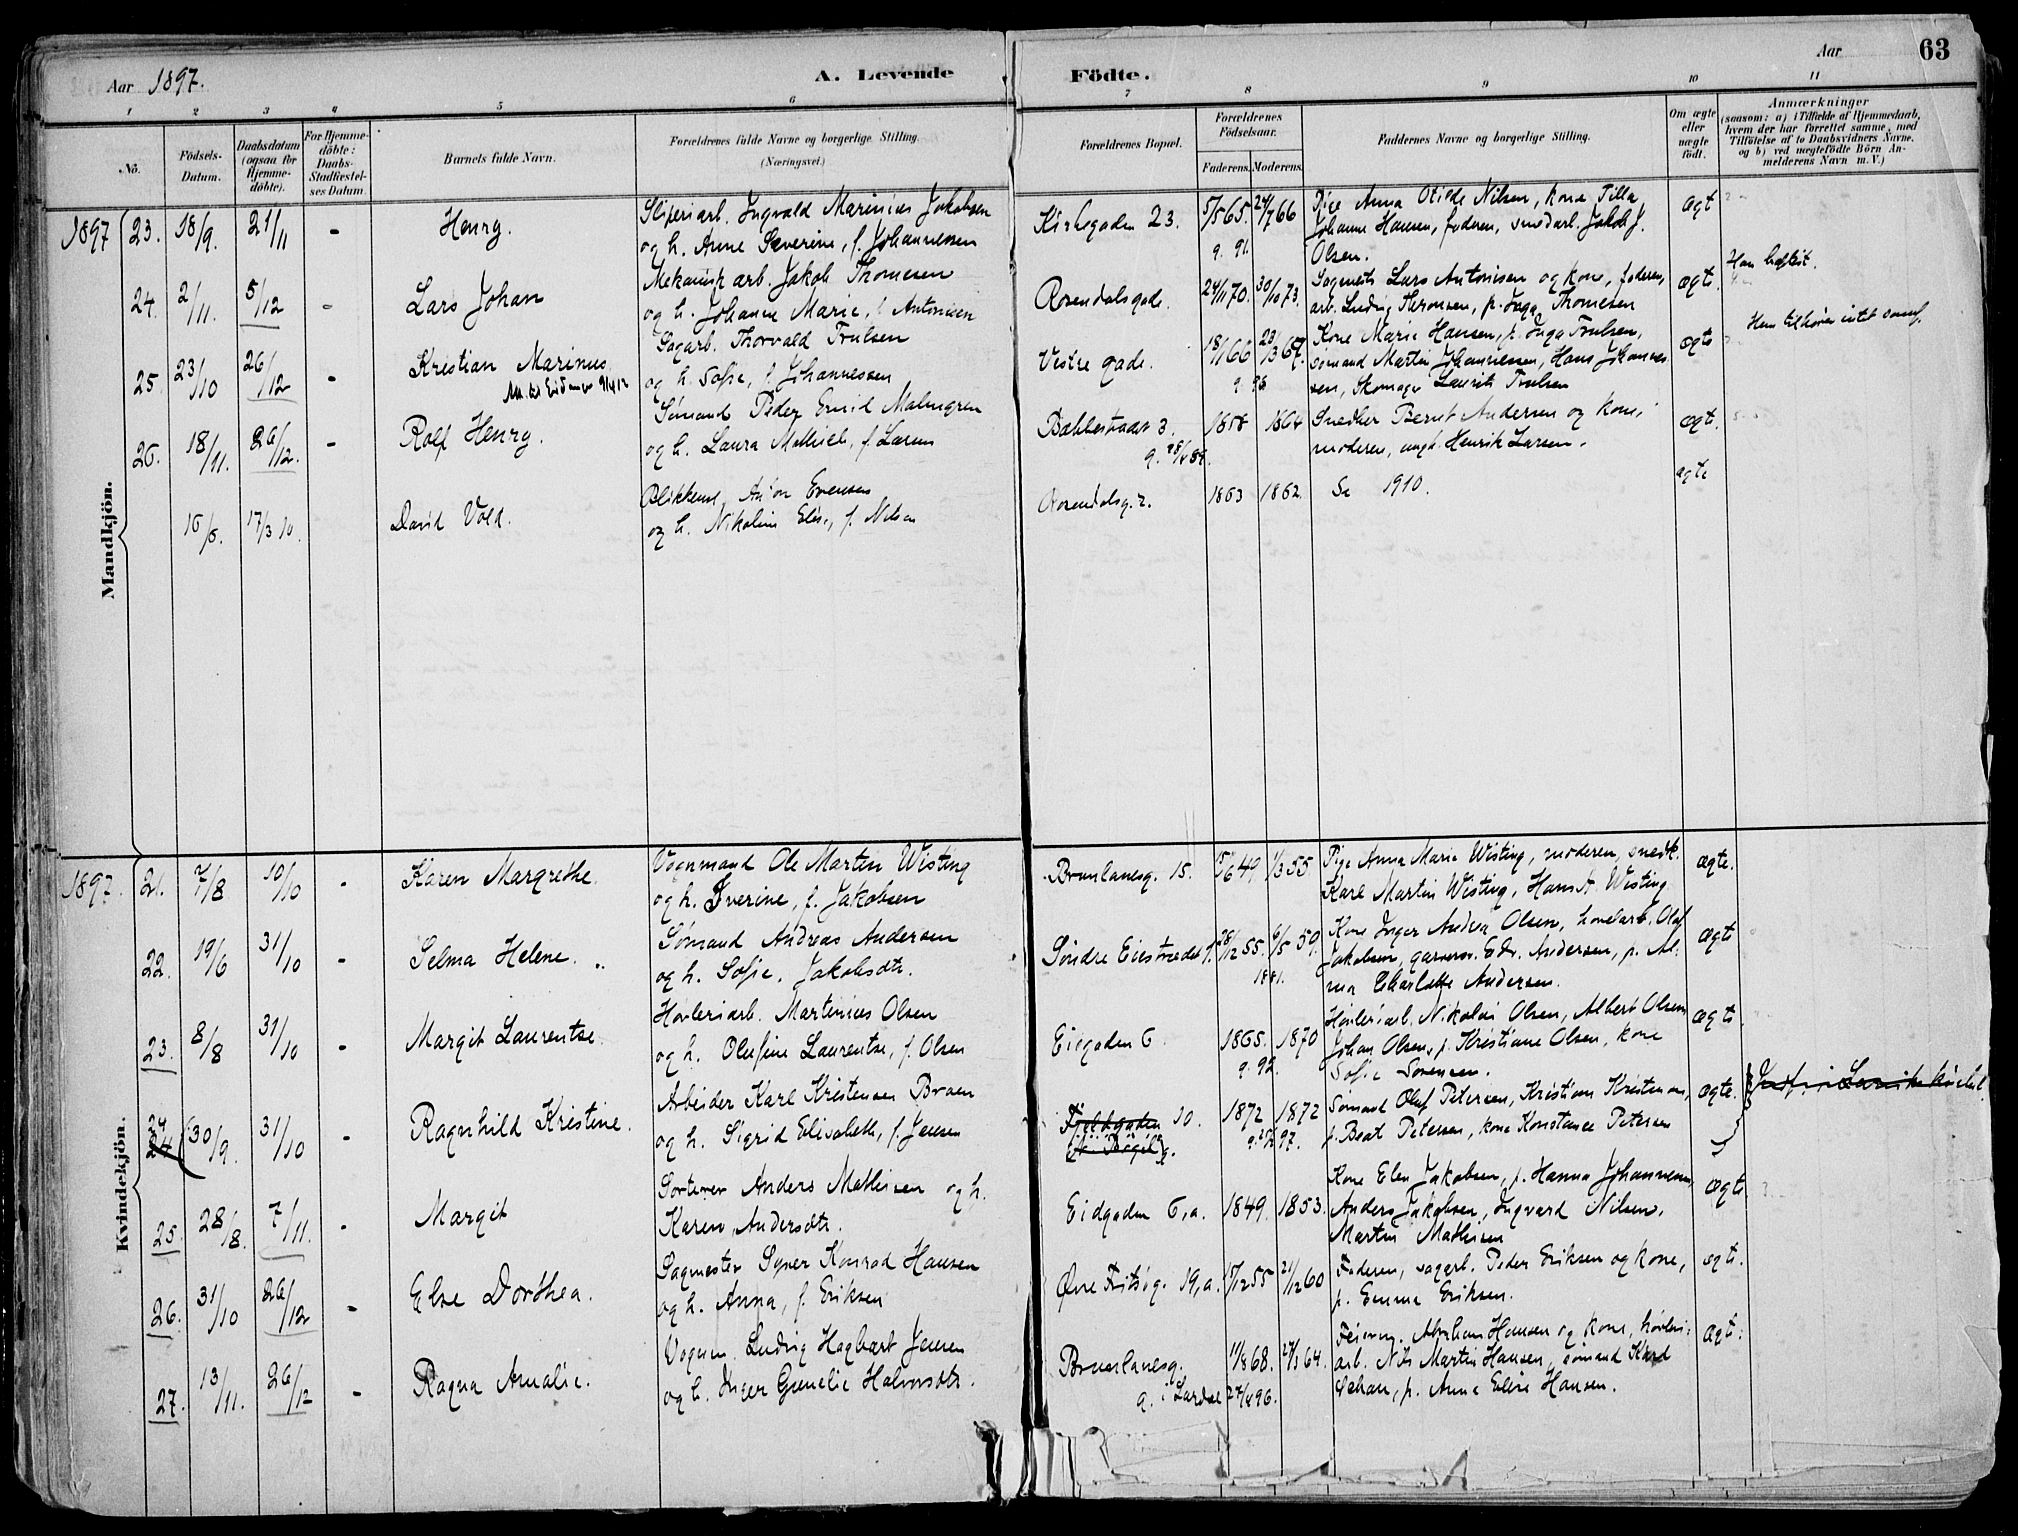 Aar 1897.
A. Levende
Födte.
Aar
63
1 2 3 4 5 6 7 8 9 10 11
No.
Födsels-
Datum.
Daabsdatum
(ogsaa for
Hjemme-
döbte).
For Hjemme-
döbte:
Daabs-
Stadfæstel-
ses Datum.
Barnets fulde Navn.
Forældrenes fulde Navne og borgerlige Stilling.
(Næringsvei.)
Forældrenes Bopæl.
Forældrenes
Födselsaar.
Faderens. Moderens.
Faddernes Navne og borgerlige Stilling.
Om ægte
eller
uægte
født.
Anmærkninger
(saasom: a) i Tilfælde af Hjemmedaab,
hvem der har forrettet samme, med
Tilføielse af to Daabsvidners Navne.
og b) ved uægtefödte Börn An-
melderens Navn m. V.)
Mandkjön.
1897 23. 18/9. 21/11 - Henry.
Sliperiarb. Ingvald Marinius Jakobsen
og h. Anne Severine, f. Johannessen
Kirkegaden 23. 5/5 65. 24/7 66
g. 91.
Pige Anna Otilde Nilsen, kone Tilla
Johanne Hansen, faderen, smedarb. Jakob J.
Olsen.
ægt
24. 2/11. 5/12 - Lars Johan
Mekanisk arb. Jakob Thomesen
og h. Johanne Marie, f. Antonisen
Rosendalsgade. 24/11 70. 30/10 73.
Sagmests Lars Antonisen og kone, faderen,
arb. Ludvig Thronsen, p. Inga Thomesen
ægt.
25. 23/10 26/12 - Kristian Marinus
Sagarb. Thorvald Trulsen
og h. Sofie, f. Johannessen
Vestre gade. 18/1 66 23/3 67.
Kone Marie Hansen, p. Inga Trulsen,
sømand Martin Johannessen, Hans Johannes
sen, Skomager Laurits Trulsen
ægte
Hun tilhører intet samf.
26. 18/11. 26/12. - Rolf Henry.
Sømand Peder Emil Malmgren
og h. Laura Mathilde, f. Larsen
Bakkestrædet 3. 1858 1864
Snedker Bernt Andersen og kone,
moderen, ungk. Henrik Larsen.
ægt.
16/5. 17/3 10. David Vold.
Blikkensl. Anton Evensen
og h. Nikoline Elise, f. Nilsen
Rosendalsg. 2. 1863 1862. Se 1910.
ægte
Kvindekjön.
1897. 21. 7/8 10/10 - Karen Margrethe.
Vognmand Ole Martin Wisting
og h. Iverine, f. Jakobsen
Brunlanesg. 15. 15/6 49 1/3 55
Pige Anna Marie Wisting, moderen, snedk.
Karl Martin Wisting, Hans A. Wisting
ægte.
22. 19/6 31/10 - Selma Helene.
Sømand Andreas Andersen
og h. Sofie, Jakobsdtr.
Søndre Eiestrædet 28/12 55. 6/5 59.
1881.
Kone Inger Andrea Olsen, høvelarb. Olaf
Jakobsen, garvers. Edv. Andersen, p. Al-
ma Charlotte Andersen.
ægte
23. 8/8 31/10 - Margit Laurentse.
Høvleriarb. Martinius Olsen
og h. Olufine Laurentse, f. Olsen
Eiegaden 6. 1865. 1870
g. 92.
Høvleriarb. Nikolai Olsen, Albert Olsen,
Johan Olsen, p. Kristiane Olsen, kone
Sofie Sørensen.
ægte
24 30/9. 31/10 - Ragnhild Kristine.
Arbeider Karl Kristensen Braen
og h. Sigrid Elisabeth, f. Jensen
Fjeldgaden 10. 1872 1872
Sømand Oluf Petersen, Kristian Kristensen,
p. Beat Petersen, kone Konstance Petersen
ægte.
25. 28/8. 7/11. - Margit
Sorterer Anders Mathisen og h.
Karen Andersdtr.
Eidgaden 6,a. 1849. 1853.
Kone Elen Jakobsen, p. Hanna Johannesen,
Anders Jakobsen, Ingvard Nilsen,
Martin Mathisen
ægte
26. 31/10 26/12 - Else Dorthea.
Sagmester Syver Konrad Hansen
og h. Anna, f. Eriksen
Øvre Fritsøg. 19,a. 17/12 55 21/12 60
Faderen, sagarb. Peder Eriksen og kone,
p. Emma Eriksen.
ægt.
27. 13/11. 26/12 - Ragna Amalie.
Vognm. Ludvig Hagbart Jensen
og h. Inger Gunelie Halvorsdtr.
Brunlanesg. 11/8 68. 27/1 64.
g. i Lardal 27/4 96.
Feierm. Abraham Hansen og kone, høvleri-
arb. Nils Martin Hansen, sømand Knud
Johan, p. Anne Elise Hansen.
ægt.